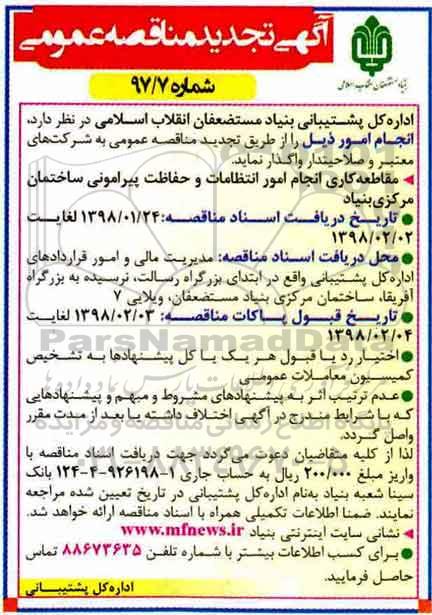 آگهی تجدید مناقصه عمومی
بنیاد مستضعفان انقلاب اسلامی
شماره ۹۷/۷
اداره کل پشتیبانی بنیاد مستضعفان انقلاب اسلامی در نظر دارد،
انجام امور ذیل را از طریق تجدید مناقصه عمومی به شرکت‌های
معتبر و صلاحیتدار واگذار نماید.
مقاطعه‌کاری انجام امور انتظامات و حفاظت پیرامونی ساختمان
مرکزی بنیاد
تاریخ دریافت اسناد مناقصه: ۱۳۹۸/۰۱/۲۴ لغایت
۱۳۹۸/۰۲/۰۲
محل دریافت اسناد مناقصه: مدیریت مالی و امور قراردادهای
اداره کل پشتیبانی واقع در ابتدای بزرگراه رسالت، نرسیده به بزرگراه
آفریقا، ساختمان مرکزی بنیاد مستضعفان، ویلایی ۷
تاریخ قبول پاکات مناقصه: ۱۳۹۸/۰۲/۰۳ لغایت
۱۳۹۸/۰۲/۰۴
اختیار رد یا قبول هر یک یا کل پیشنهادها به تشخیص
کمیسیون معاملات عمومی
عدم ترتیب اثر به پیشنهادهای مشروط و مبهم و پیشنهادهایی
که با شرایط مندرج در آگهی اختلاف داشته یا بعد از مدت مقرر
واصل گردد.
لذا از کلیه متقاضیان دعوت می‌گردد جهت دریافت اسناد مناقصه با
واریز مبلغ ۲۰۰/۰۰۰ ریال به حساب جاری ۱-۹۲۶۱۹۸-۴-۱۲۴ بانک
سینا شعبه بنیاد به‌نام اداره کل پشتیبانی در تاریخ تعیین شده مراجعه
نمایند. ضمنا اطلاعات تکمیلی همراه با اسناد مناقصه ارائه خواهد شد.
نشانی سایت اینترنتی بنیاد www.mfnews.ir
برای کسب اطلاعات بیشتر با شماره تلفن ۸۸۶۷۳۶۳۵ تماس
حاصل فرمایید.
اداره کل پشتیبانی
ParsNamadData